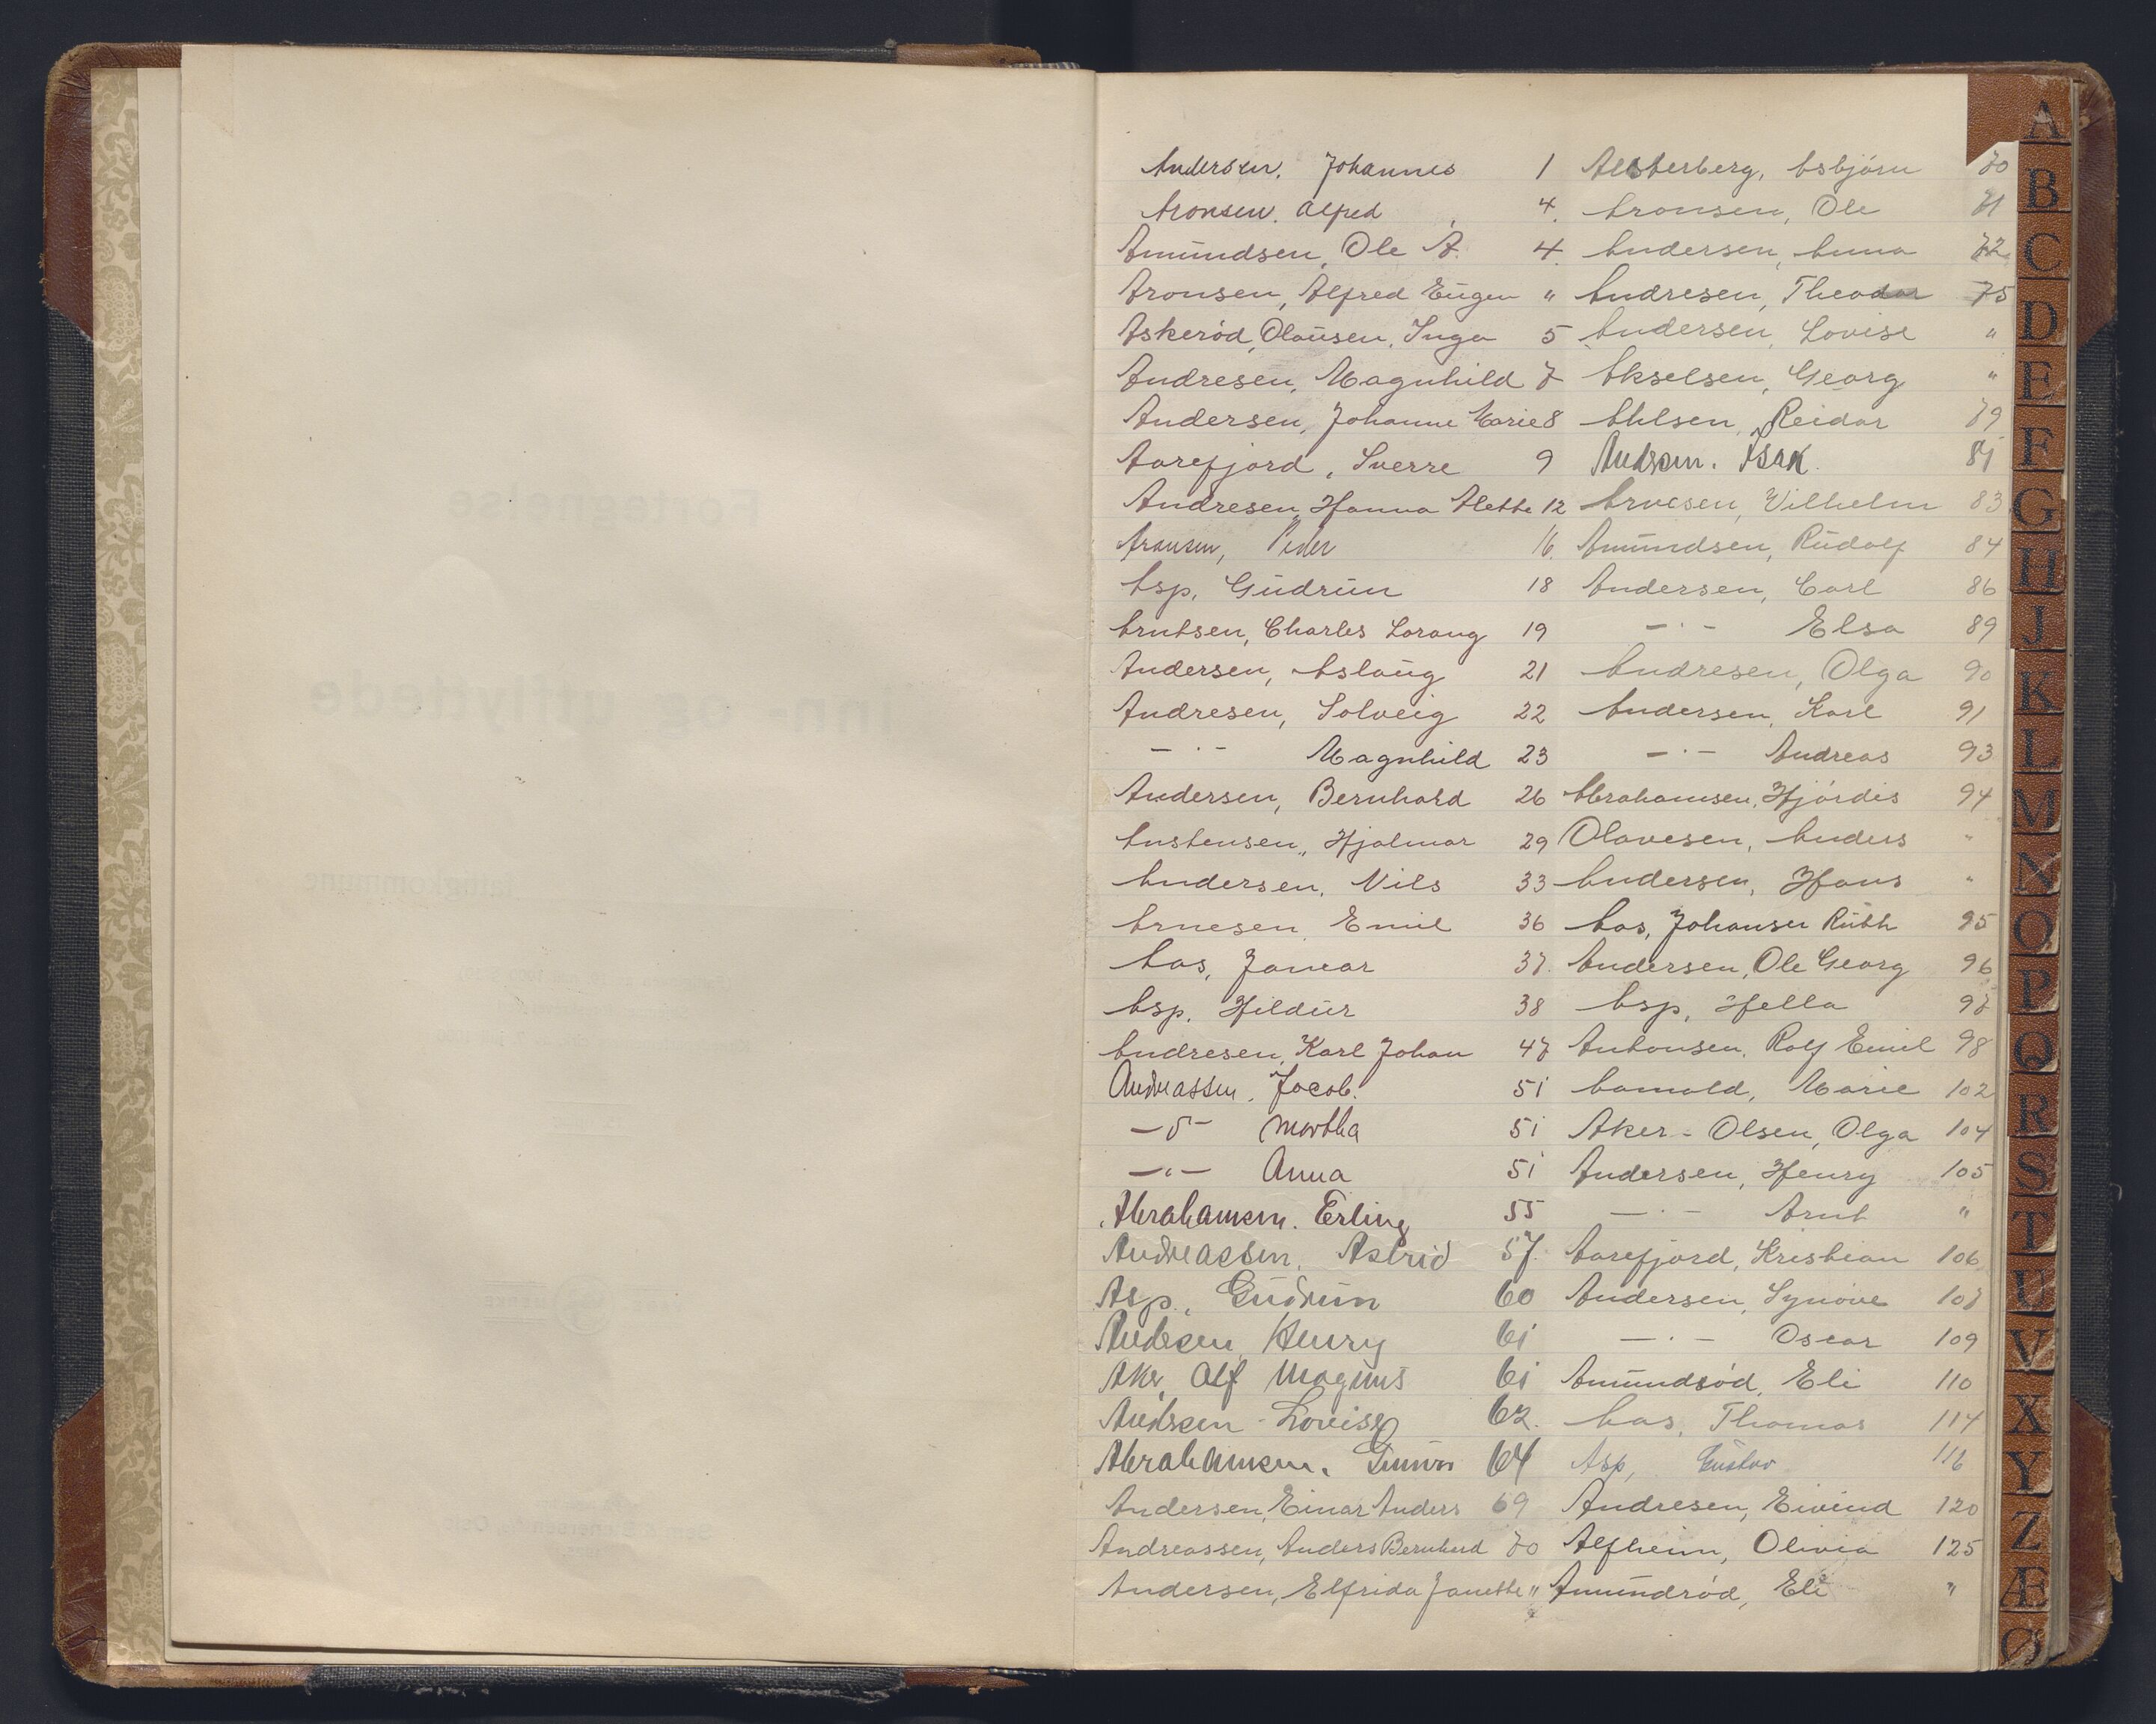 Andersen. Johannes 1
Aronsen. Alfred 4.
Amundsen, Ole A. 4.
Aronsen, Alfred Eugen "
Askeröd, Olausen, Inga 5
Andresen, Magnhild 7
Andersen, Johanne Marie 8
Aarefjord, Sverre 9
Andresen, Hanna Alette 12
Aronsen, Peder 16.
Asp, Gudrun 18
Arntsen, Charles Lorang 19
Andersen, Aslaug 21
Andresen, Solveig 22
— · — Magnhild 23
Andersen, Bernhard 26
Austensen, Hjalmar 29
Andersen, Nils 33
Arnesen, Emil 36
Aas, Januar 37.
Asp, Hildur 38
Andresen, Karl Johan 47
Andreassen, Jacob. 51
—"— Martha 51
—"— Anna 51
Abrahamsen. Erling 55
Andreassen, Astrid 57.
Asp, Gudrun 60
Andersen, Henry 61
Aker, Alf Magnus 61
Andersen - Lovise 62.
Abrahamsen, Gunvor 64
Andersen, Einar Anders 69
Andreassen, Anders Bernhard 70
Andersen, Elfrida Janette "
Alsterberg, Asbjörn 70
Aronsen, Ole 71
Andersen, Anna 72
Andresen, Theodor 75
Andersen, Lovise "
Akselsen, Georg "
Ahlsen, Reidar 79
Andersen. Isak. 81
Arnesen, Wilhelm 83
Amundsen, Rudolf 84
Andersen, Carl 86
— · — Elsa 89
Andresen, Olga 90
Andersen, Karl 91
— · — Andreas 93
Abrahamsen, Hjördis 94
Olavesen, Anders "
Andersen, Hans "
Aas, Johansen Ruth 95
Andersen, Ole Georg 96
Asp, Hella 97
Antonsen, Rolf Emil 98
Aamold, Marie 102
Aker - Olsen, Olga 104
Andersen, Henry 105
— · — Arnt "
Aarefjord, Kristian 106
Andersen, Synöve 107
— · — Oscar 109
Amundsöd, Eli 110
Aas, Thomas 114
Asp, Gustav 116
Andresen, Eivind 120
Alfheim, Olivia 125
Amundröd, Eli "
A
B
C
D
E
F
G
H
J
K
L
M
N
O
P
Q
R
S
T
U
V
X
Y
Z
Æ
Ø